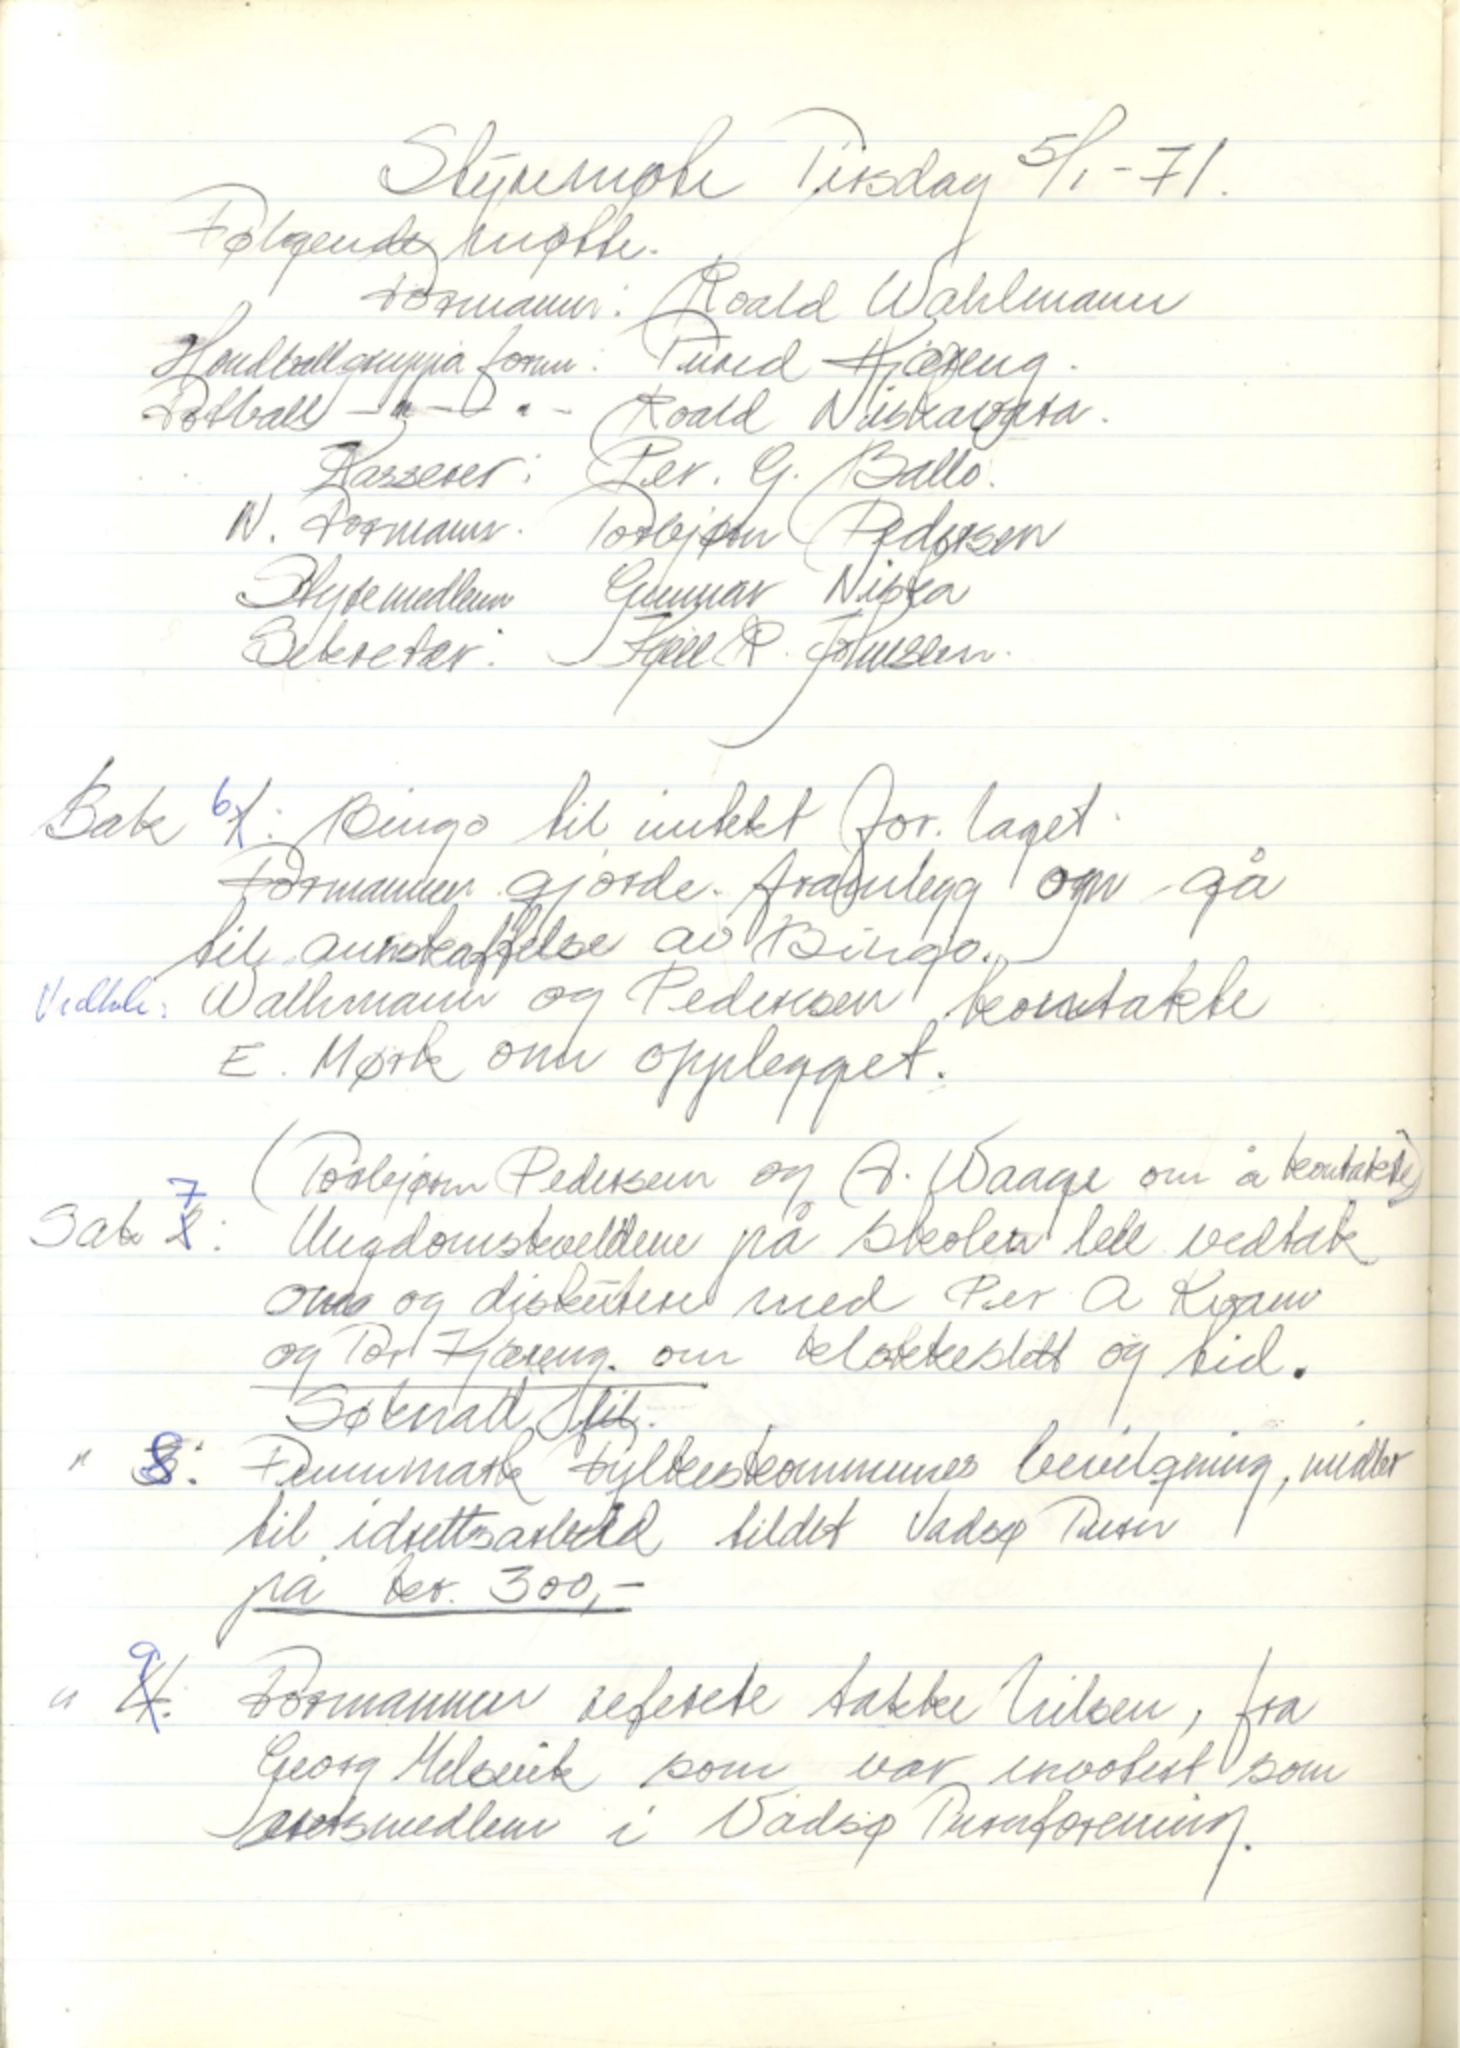 Styremøte Tirsdag 5/1-71.
Følgende møtte.
Formann: Roald Wahlmann
Håndballgruppa form: Turid Kjæreng.
Fotball -"- - " - Roald Niskavaara.
Kasserer: Per. G. Ballo.
N. Formann. Torbjørn Pedersen
Styremedlem Gunnar Niska
Sekretær: Kjell R. Johnsen.
Sak 6: Bingo til inntekt for laget.
Formannen gjorde framlegg om gå
til annskaffelse av Bingo.
Vedtak: Walhmann og Pedersen kontakte
E. Mørk om opplegget.
(Torbjørn Pedersen og A. Waage om å kontakte)
Sak 7: Ungdomskveldene på skolen ble vedtak
om og diskutere med Per A Kvam
og Tor Kjæreng om klokkeslett og tid.
Søknad til.
" 8: Finnmark Fylkeskommunes bevilgning, midler
til idrettsarbeid tildelt Vadsø Turn
på kr. 300,-
" 9: Formannen referete takke hilsen, fra
Georg Melsvik som var invotert som
æresmedlem i Vadsø Turnforening.